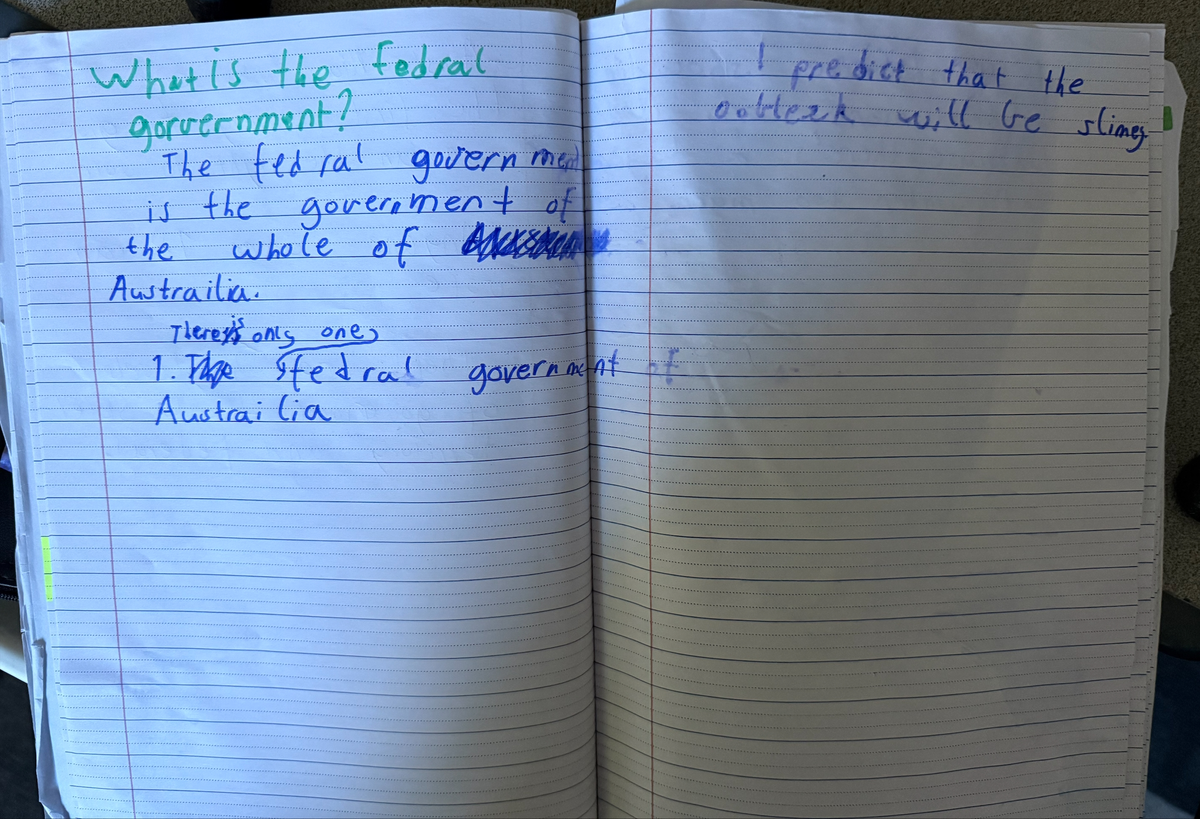 What is the fedral
gorvernment?
The fedral government
is the government of
the whole of
Austrailia.
There's only one
1. fedral government of
Austrailia
I predict that the
oobleek will be slimey